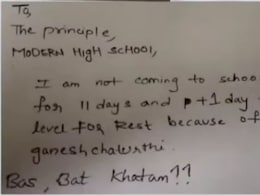 To,
The principle,
MODERN HIGH SCHOOL,
I am not coming to schoo
for 11 days and P+1 day
level FOR Rest because of
ganeshchaturthi.
Bas, Bat Khatam??